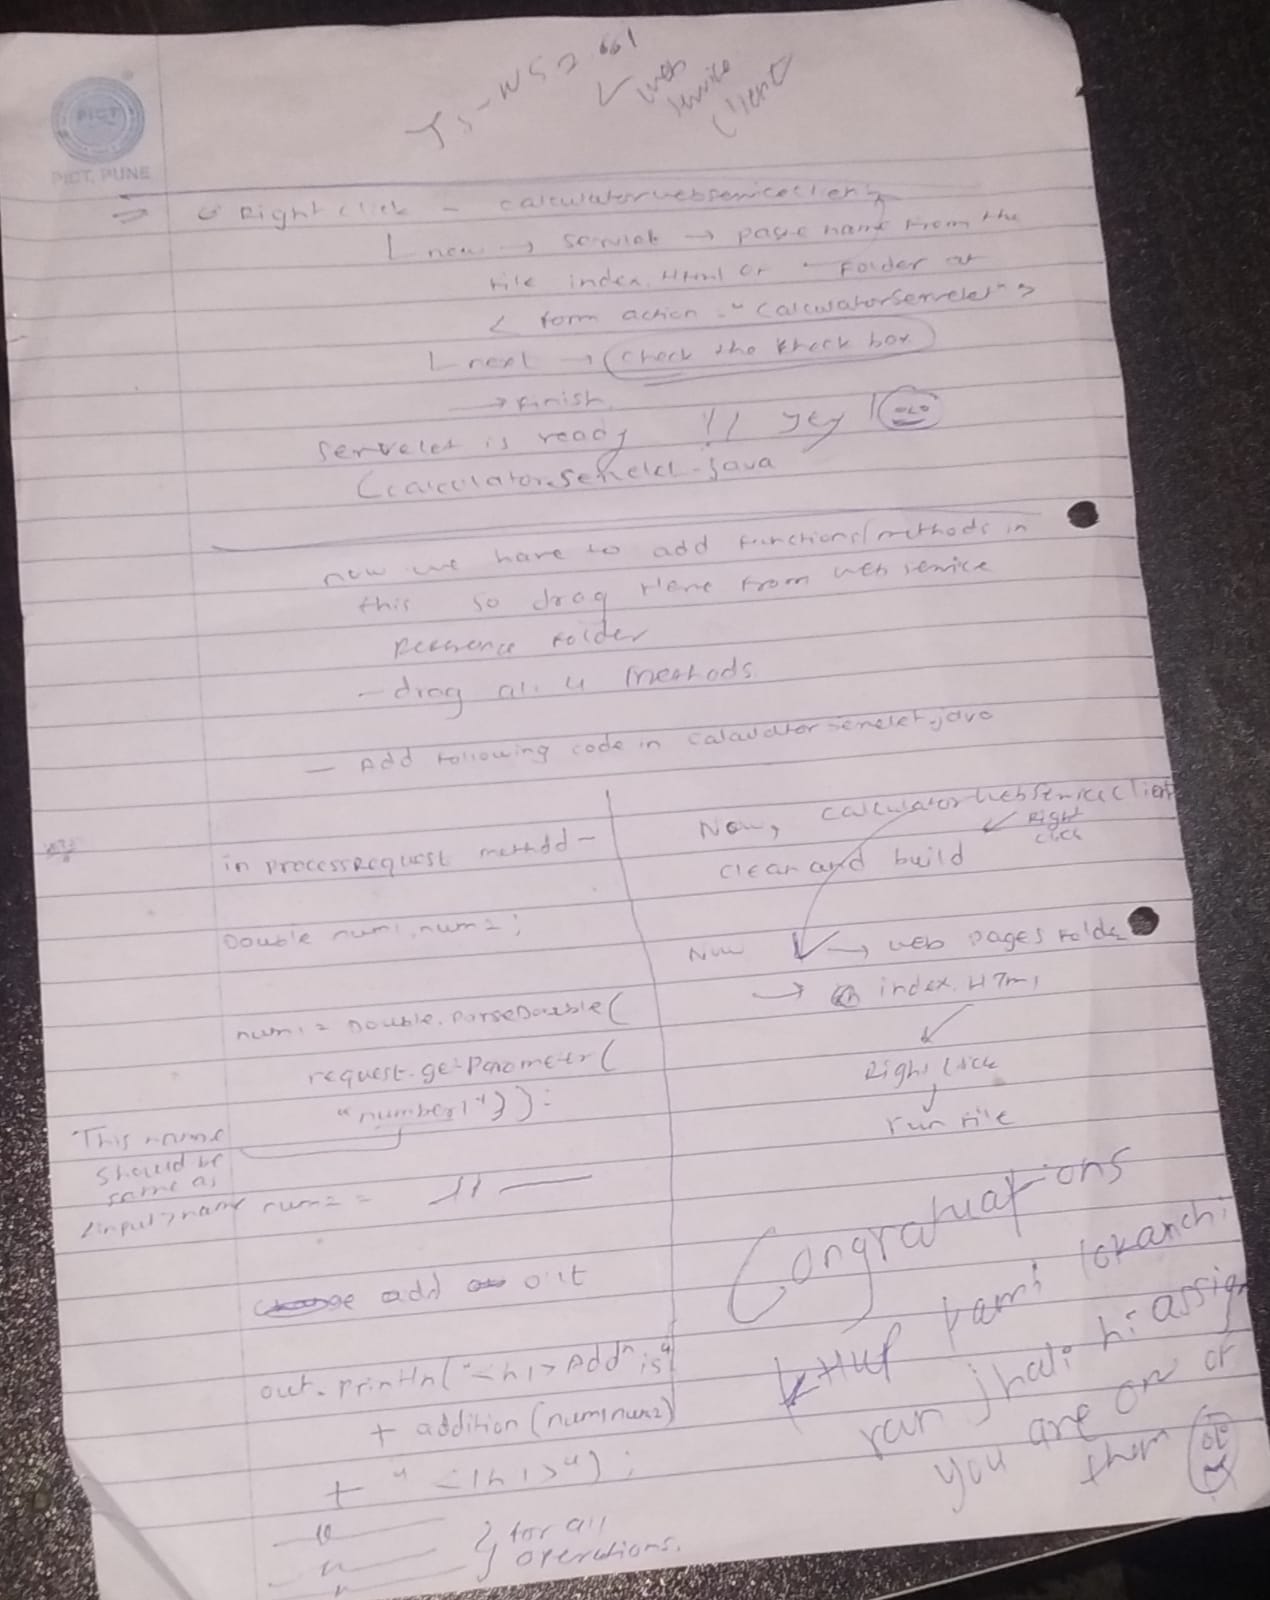 PICT
PICT, PUNE
web
service
client
Right click - calculatorwebserviceclient
new → servlet → page name from the
file index.html or Folder at
< form action = "CalculatorServelet" >
next → (check the check box)
→ Finish
Servelet is ready !! yey !
(calculatorServelet.java
now we have to add functions/methods in
this so drag Here from web service
Reference Folder
- drag all 4 methods
- Add following code in calculatorservelet.java
in processRequest method -
Double num1, num2;
num1 = Double.parseDouble(
request.getParameter(
"number1"));
This name
should be
same as
<input> name
num2 = - 11 -
add out
out.println("<h1>Addn is"
+ addition(num1num2)
+ "</h1>");
" } for all
" operations.
"
Now, calculatorWebServiceClient
Right
click
clean and build
Now → web pages folde
→ index.HTml
Right click
run file
Congratulations
Khup kami lokanchi
run jhali hi assign
you are one of
them